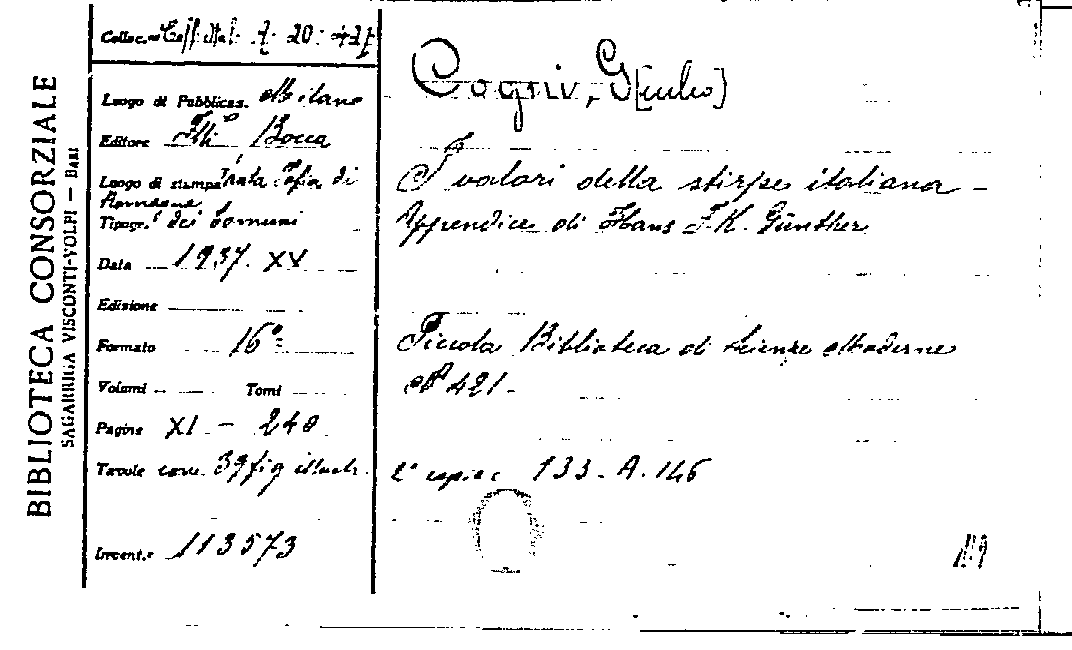 BIBLIOTECA CONSORZIALE
SAGARRIGA VISCONTI-VOLPI — BARI
Colloc.ne
Luogo di Pubblicaz. Milano
Editore F.lli Bocca
Luogo di stampa Tipografia di
Romagna
Tipogr. dei Comuni
Data 1937. XV
Edizione
Formato 16°
Volumi Tomi
Pagine XI - 248
Tavole con 39 fig illustr.
Invent.e 113573
Cogni, G[iulio]
I valori della stirpe italiana -
Appendice di Hans F. K. Günther
Piccola Biblioteca di Scienze Moderne
N° 421 -
2ª copia: 133. A. 146